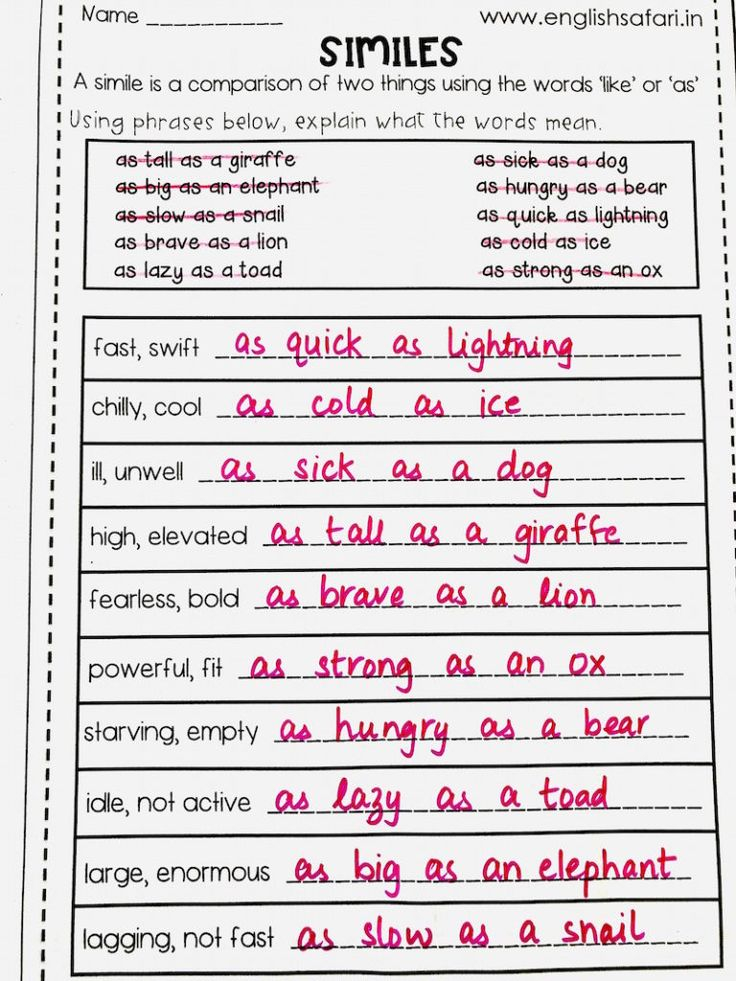 Name __________ www.englishsafari.in
SIMILES
A simile is a comparison of two things using the words 'like' or 'as'
Using phrases below, explain what the words mean.
as tall as a giraffe as sick as a dog
as big as an elephant as hungry as a bear
as slow as a snail as quick as lightning
as brave as a lion as cold as ice
as lazy as a toad as strong as an ox
fast, swift as quick as lightning
chilly, cool as cold as ice
ill, unwell as sick as a dog
high, elevated as tall as a giraffe
fearless, bold as brave as a lion
powerful, fit as strong as an ox
starving, empty as hungry as a bear
idle, not active as lazy as a toad
large, enormous as big as an elephant
lagging, not fast as slow as a snail